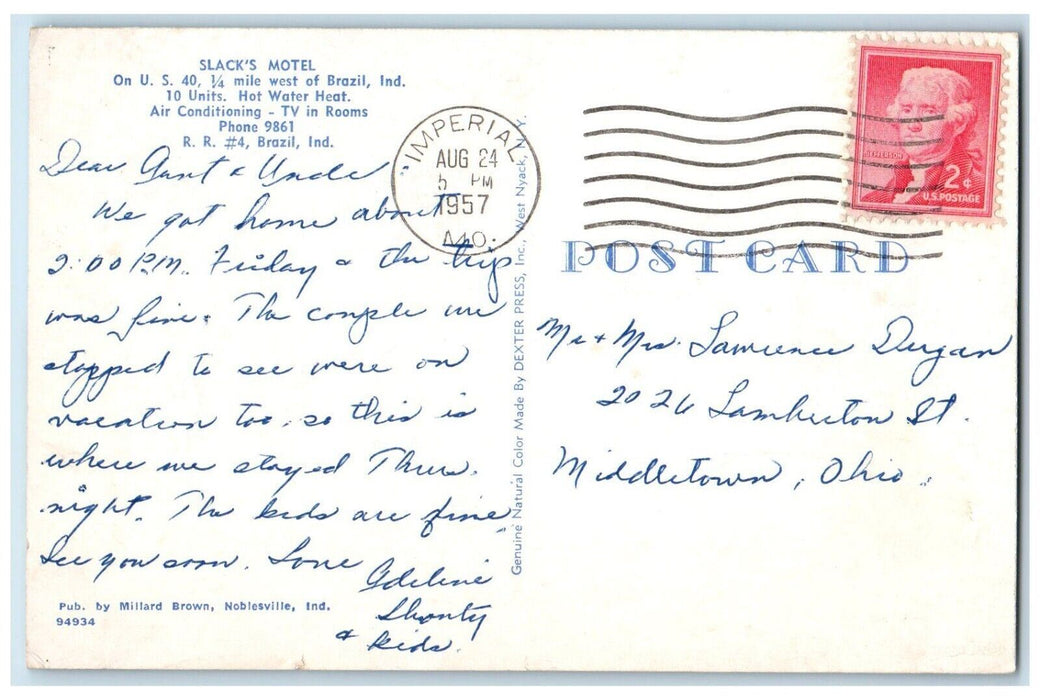 SLACK'S MOTEL
On U. S. 40, ¼ mile west of Brazil, Ind.
10 Units. Hot Water Heat.
Air Conditioning - TV in Rooms
Phone 9861
R. R. #4, Brazil, Ind.
Dear Aunt & Uncle
We got home about
2:00 P.M. Friday & the trip
was fine. The couple we
stopped to see were on
vacation too, so this is
where we stayed Thurs.
night. The kids are fine
See you soon. Love
Adeline
Shorty
& kids.
Pub. by Millard Brown, Noblesville, Ind.
94934
Genuine Natural Color Made By DEXTER PRESS, Inc., West Nyack, N.Y.
IMPERIAL
AUG 24
5 PM
1957
MO.
JEFFERSON
2¢
U.S. POSTAGE
POST CARD
Mr + Mrs. Lawrence Dugan
2026 Lamberton St.
Middletown, Ohio.